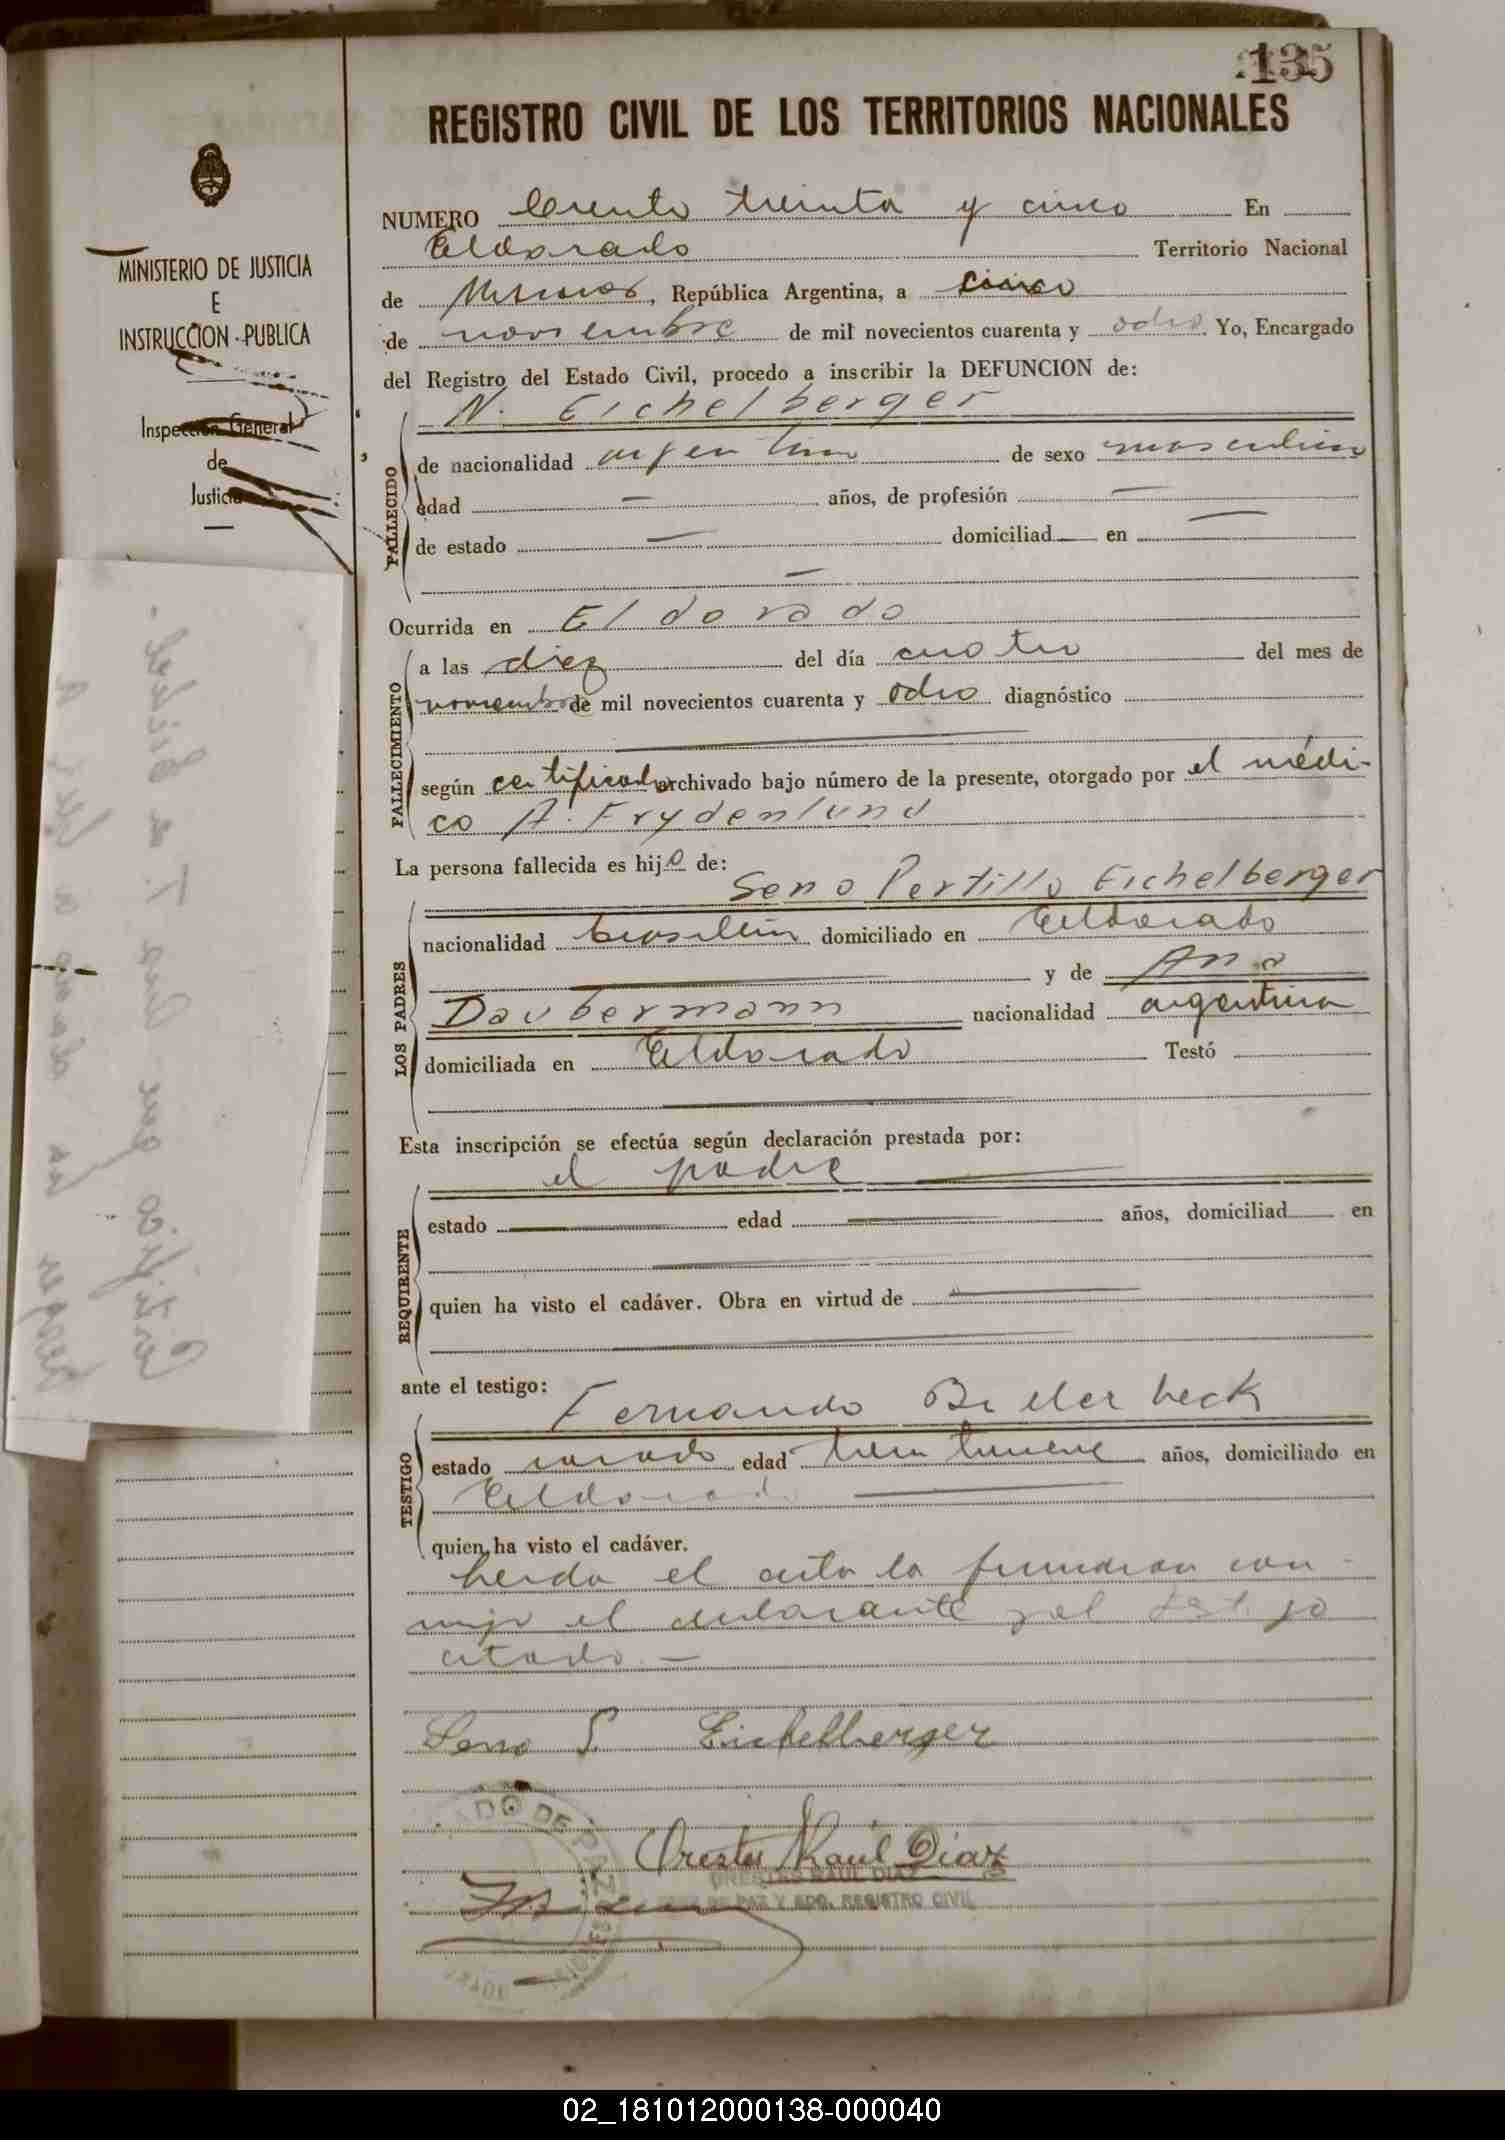 135
REGISTRO CIVIL DE LOS TERRITORIOS NACIONALES
MINISTERIO DE JUSTICIA
E
INSTRUCCION - PUBLICA
Inspección General
de
Justicia
NUMERO Ciento treinta y cinco En
Eldorado Territorio Nacional
de Misiones, República Argentina, a cinco
de noviembre de mil novecientos cuarenta y ocho Yo, Encargado
del Registro del Estado Civil, procedo a inscribir la DEFUNCION de:
N. Eichelberger
FALLECIDO
de nacionalidad argentina de sexo masculino
edad — años, de profesión —
de estado — domiciliad en —
—
Ocurrida en Eldorado
FALLECIMIENTO
a las diez del día cuatro del mes de
noviembre de mil novecientos cuarenta y ocho diagnóstico
según certificado archivado bajo número de la presente, otorgado por el médi-
co A. Frydenlund
La persona fallecida es hijo de:
Seno Pertillo Eichelberger
LOS PADRES
nacionalidad domiciliado en Eldorado
y de Ana
Daubermann nacionalidad argentina
domiciliada en Eldorado Testó
Esta inscripción se efectúa según declaración prestada por:
el padre
REQUIRENTE
estado edad años, domiciliad en
quien ha visto el cadáver. Obra en virtud de
ante el testigo:
Fernando Billerbeck
TESTIGO
estado casado edad años, domiciliado en
Eldorado
quien ha visto el cadáver.
Leida el acta la firmaron con-
migo el declarante y el testigo
citado —
Seno P. Eichelberger
Orestes Raúl Diaz
ORESTES RAUL DIAZ
JUEZ DE PAZ Y EDO. REGISTRO CIVIL
02_181012000138-000040